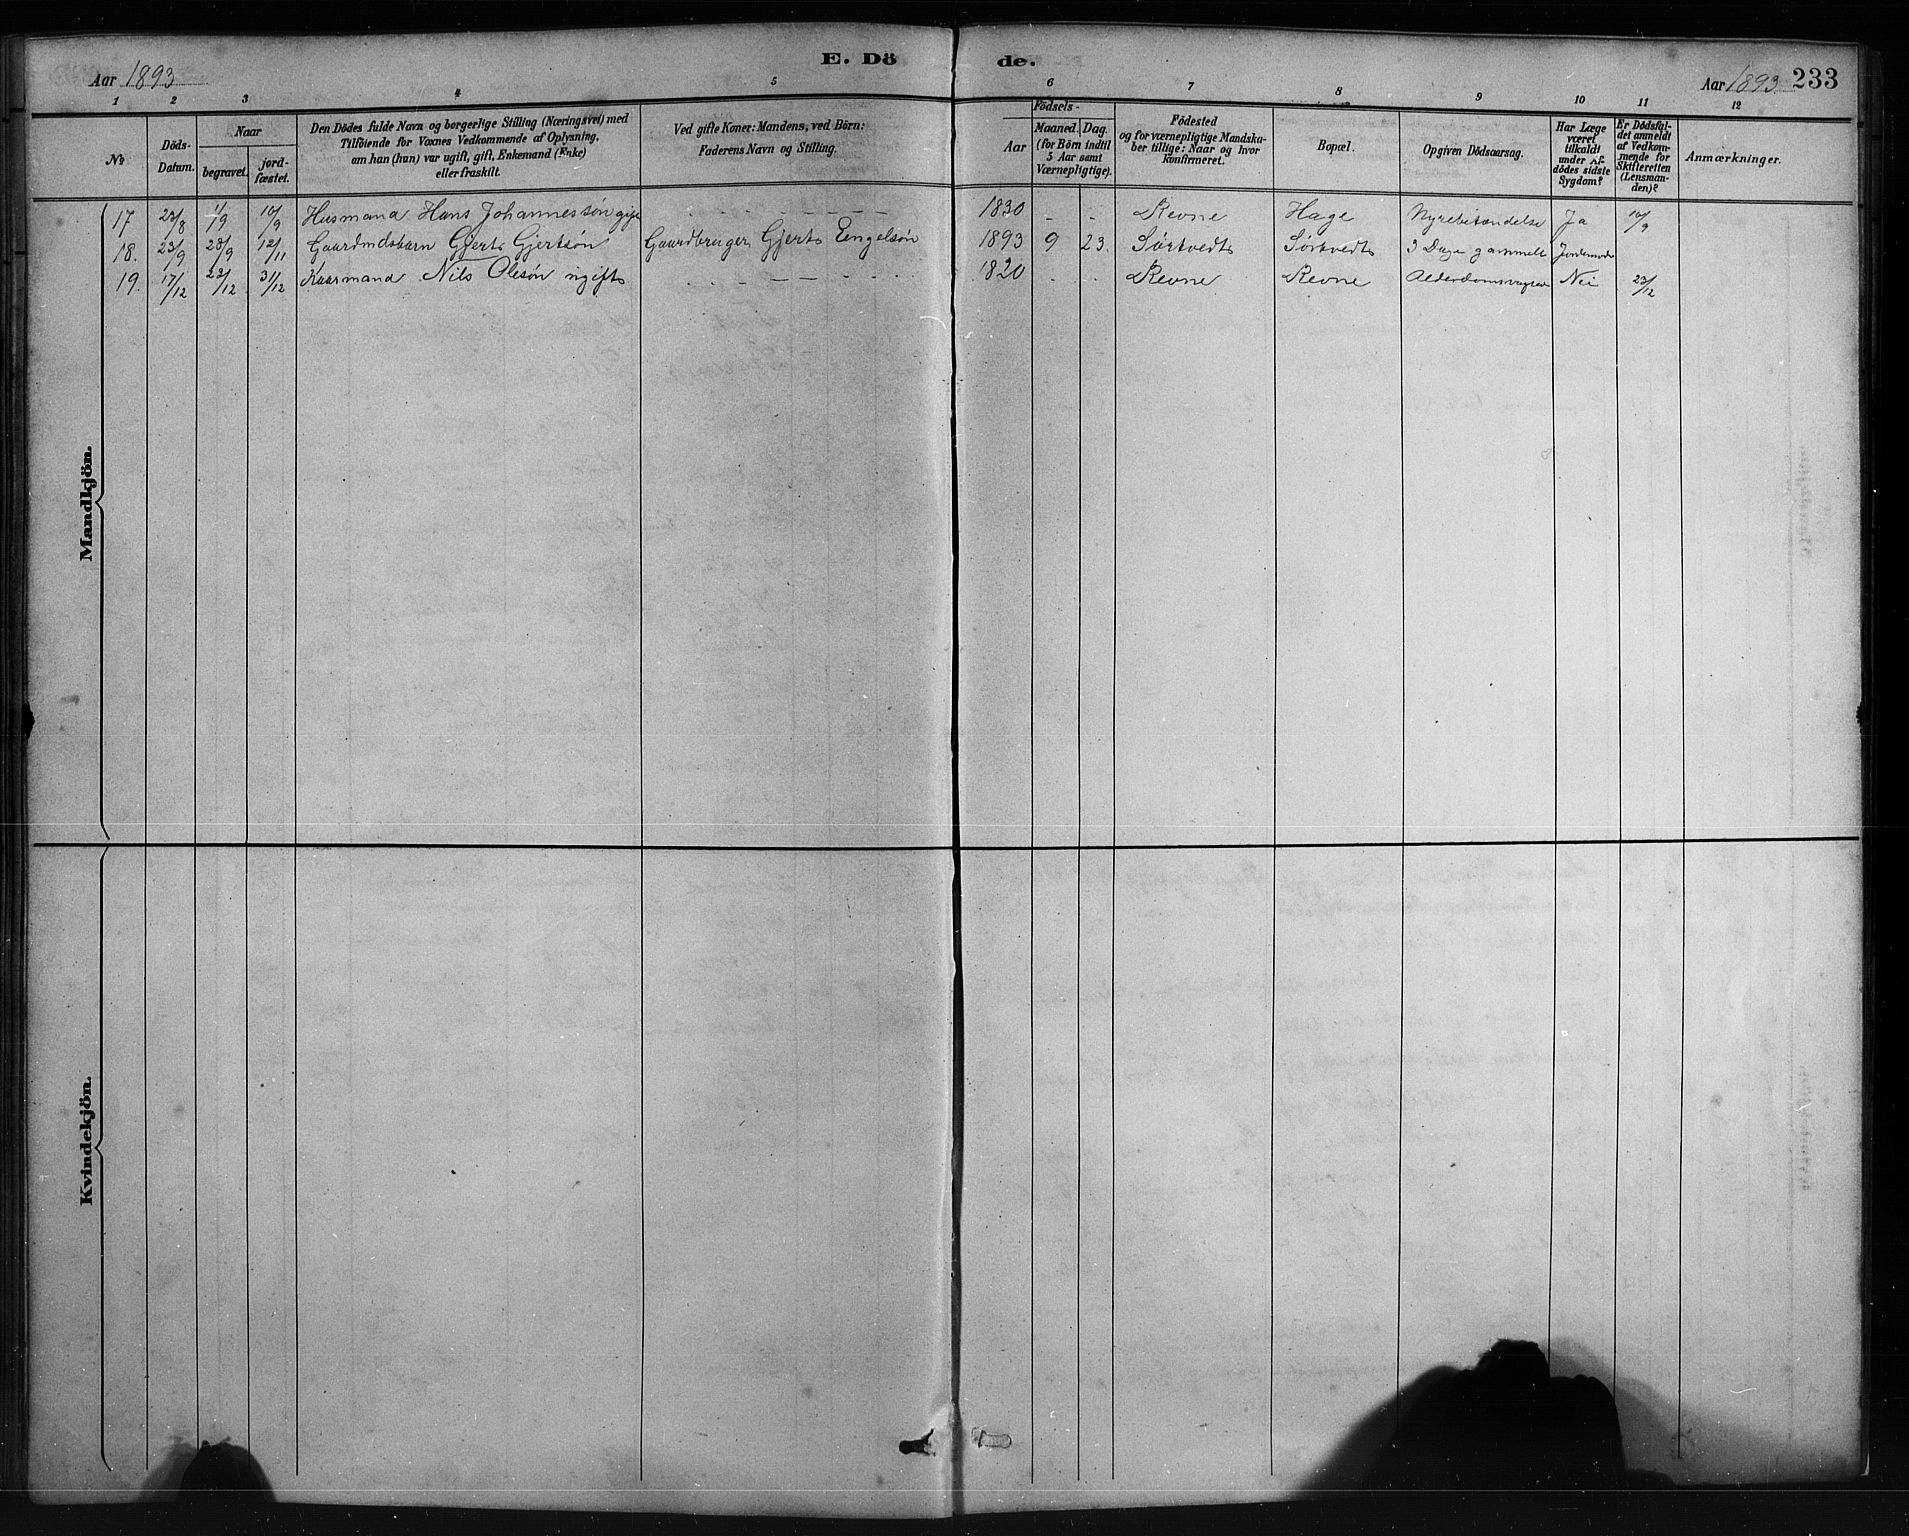 Aar 1893
E. Dö de.
Aar 1893. 233
1 2 3 4 5 6 7 8 9 10 11 12
No
Döds-
Datum.
Naar
begravet.
jord-
fæstet.
Den Dödes fulde Navn og borgerlige Stilling (Næringsvei) med
Tilföiende for Voxnes Vedkommende af Oplysning,
om han (hun) var ugift, gift, Enkemand (Enke)
eller fraskilt.
Ved gifte Koner: Mandens, ved Börn:
Faderens Navn og Stilling.
Födsels-
Aar
Maaned. Dag.
(for Börn indtil
5 Aar samt
Værnepligtige).
Födested
og for værnepligtige Mandska-
ber tillige: Naar og hvor
konfirmeret.
Bopæl.
Opgiven Dödsaarsag.
Har Læge
været
tilkaldt
under Af-
dödes sidste
Sygdom?
Er Dödsfal-
det anmeldt
af Vedkom-
mende for
Skifteretten
(Lensman-
den)?
Anmærkninger.
Mandkjön.
17 23/8 1/9 10/9 Husmand Hans Johannessøn gift - - - - - - 1830 - - Revne Hage Nyrebetændelse Ja 10/9
18. 23/9 28/9 12/11 Gaardmdsbarn Gjert Gjertsøn Gaardbruger Gjert Engelsøn 1893 9 23. Sørtvedt Sørtvedt 3 Dage gammelt Jordemoder
19. 17/12 23/12 31/12 Kaarmand Nils Olesøn ugift - - - - - - 1820 - - Revne Revne Nei 23/12
Kvindekjön.